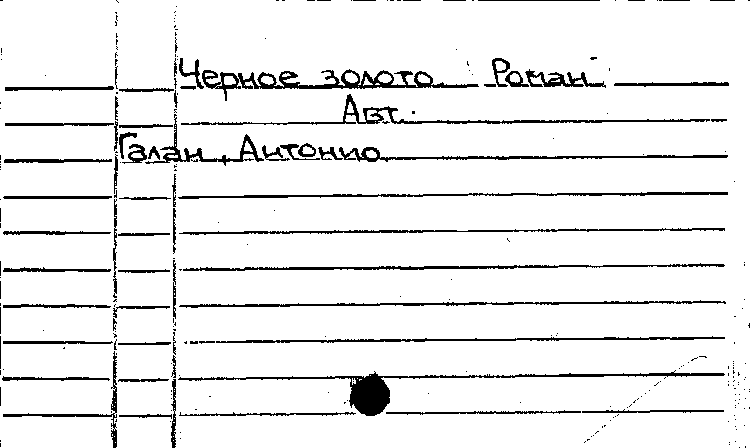 Черное золото. Роман
Авт.
Галан, Антонио